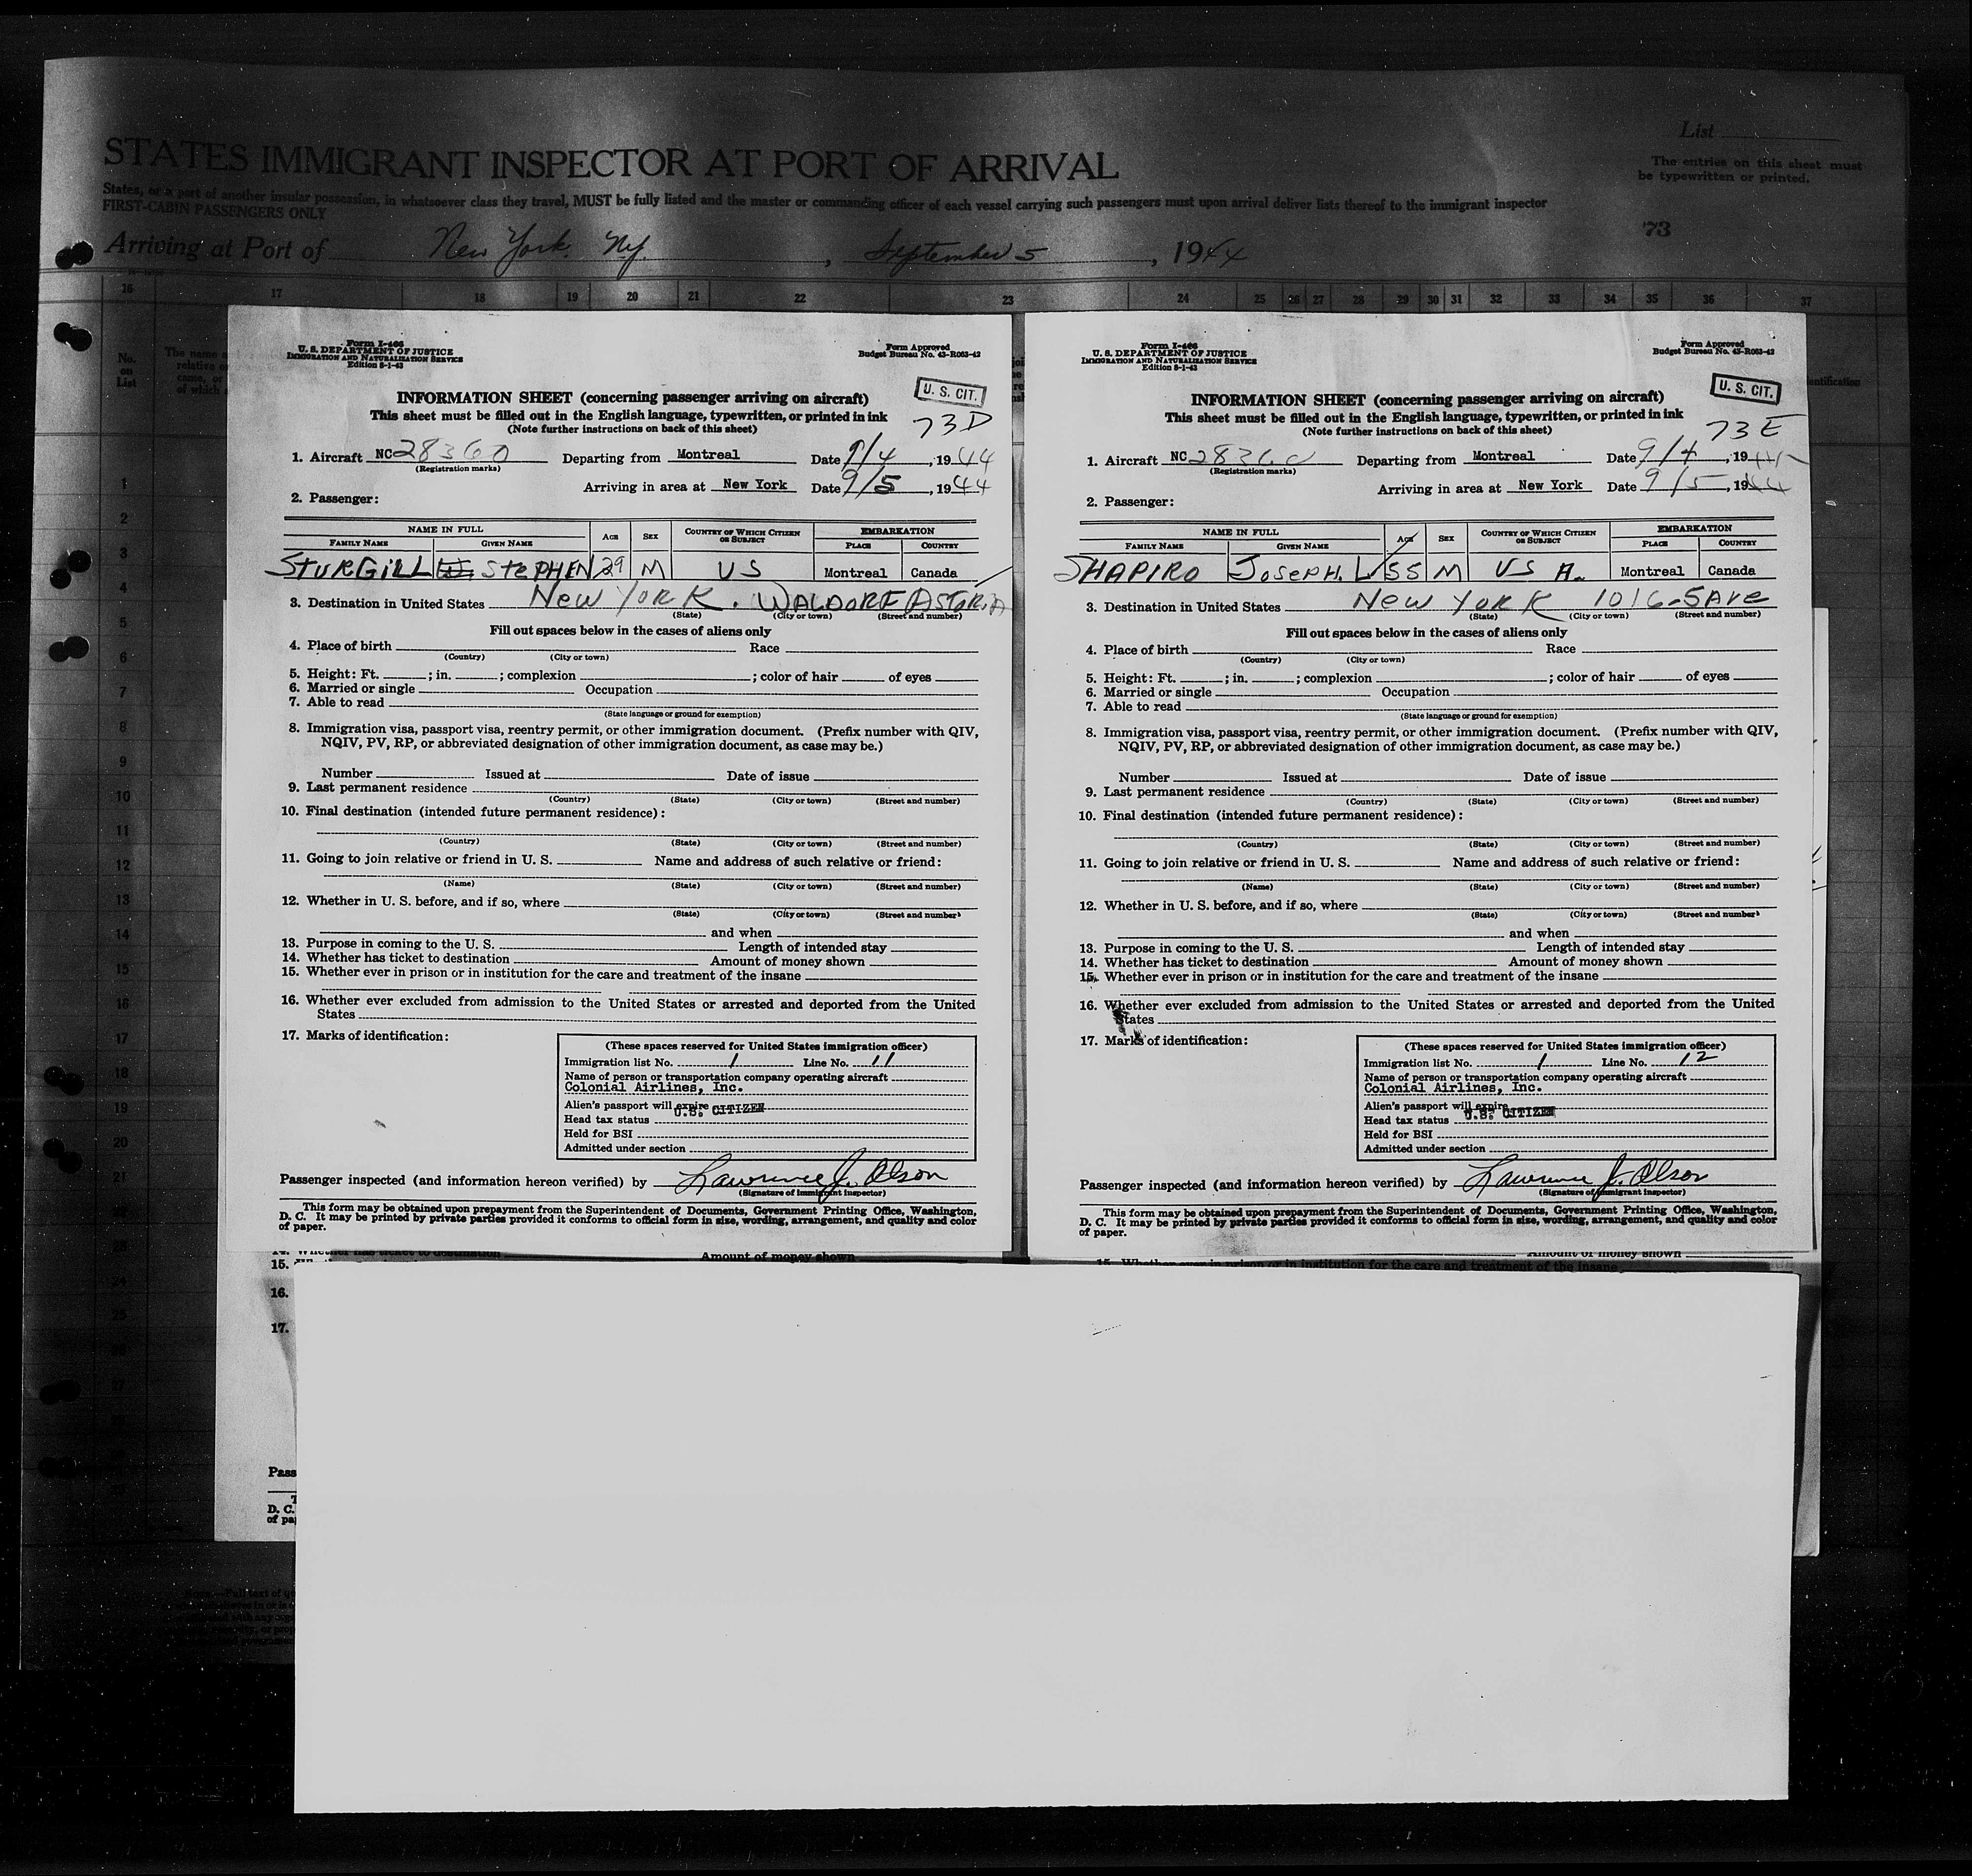 List
STATES IMMIGRANT INSPECTOR AT PORT OF ARRIVAL
The entries on this sheet must
be typewritten or printed.
States, or a part of another insular possession, in whatsoever class they travel, MUST be fully listed and the master or commanding officer of each vessel carrying such passengers must upon arrival deliver lists thereof to the immigrant inspector
FIRST-CABIN PASSENGERS ONLY
73
Arriving at Port of New York, Ny. , September 5 , 1944
16 17 18 19 20 21 22 23 24 25 26 27 28 29 30 31 32 33 34 35 36 37
No.
on
List
Form I-466
U. S. DEPARTMENT OF JUSTICE
IMMIGRATION AND NATURALIZATION SERVICE
Edition 8-1-43
Form Approved
Budget Bureau No. 43-R063-42
U. S. CIT.
INFORMATION SHEET (concerning passenger arriving on aircraft)
This sheet must be filled out in the English language, typewritten, or printed in ink
(Note further instructions on back of this sheet)
73D
1. Aircraft NC 28360 Departing from Montreal Date 9/4, 1944
(Registration marks)
Arriving in area at New York Date 9/5, 1944
2. Passenger:
NAME IN FULL AGE SEX COUNTRY OF WHICH CITIZEN OR SUBJECT EMBARKATION
FAMILY NAME GIVEN NAME PLACE COUNTRY
STURGILL STEPHEN 29 M US Montreal Canada
3. Destination in United States NEW YORK. WALDORF ASTORIA
(State) (City or town) (Street and number)
Fill out spaces below in the cases of aliens only
4. Place of birth Race
(Country) (City or town)
5. Height: Ft. ; in. ; complexion ; color of hair of eyes
6. Married or single Occupation
7. Able to read
(State language or ground for exemption)
8. Immigration visa, passport visa, reentry permit, or other immigration document. (Prefix number with QIV,
NQIV, PV, RP, or abbreviated designation of other immigration document, as case may be.)
Number Issued at Date of issue
9. Last permanent residence
(Country) (State) (City or town) (Street and number)
10. Final destination (intended future permanent residence):
(Country) (State) (City or town) (Street and number)
11. Going to join relative or friend in U. S. Name and address of such relative or friend:
(Name) (State) (City or town) (Street and number)
12. Whether in U. S. before, and if so, where
(State) (City or town) (Street and number)
and when
13. Purpose in coming to the U. S. Length of intended stay
14. Whether has ticket to destination Amount of money shown
15. Whether ever in prison or in institution for the care and treatment of the insane
16. Whether ever excluded from admission to the United States or arrested and deported from the United
States
17. Marks of identification:
(These spaces reserved for United States immigration officer)
Immigration list No. 1 Line No. 11
Name of person or transportation company operating aircraft
Colonial Airlines, Inc.
Alien's passport will expire U.S. CITIZEN
Head tax status
Held for BSI
Admitted under section
Passenger inspected (and information hereon verified) by Lawrence J. Olson
(Signature of immigrant inspector)
This form may be obtained upon prepayment from the Superintendent of Documents, Government Printing Office, Washington,
D. C. It may be printed by private parties provided it conforms to official form in size, wording, arrangement, and quality and color
of paper.
Form I-466
U. S. DEPARTMENT OF JUSTICE
IMMIGRATION AND NATURALIZATION SERVICE
Edition 8-1-43
Form Approved
Budget Bureau No. 43-R063-42
U. S. CIT.
INFORMATION SHEET (concerning passenger arriving on aircraft)
This sheet must be filled out in the English language, typewritten, or printed in ink
(Note further instructions on back of this sheet)
73E
1. Aircraft NC 28360 Departing from Montreal Date 9/4, 1944
(Registration marks)
Arriving in area at New York Date 9/5, 1944
2. Passenger:
NAME IN FULL AGE SEX COUNTRY OF WHICH CITIZEN OR SUBJECT EMBARKATION
FAMILY NAME GIVEN NAME PLACE COUNTRY
SHAPIRO JOSEPH. L 55 M US A. Montreal Canada
3. Destination in United States NEW YORK 1016-5AVE
(State) (City or town) (Street and number)
Fill out spaces below in the cases of aliens only
4. Place of birth Race
(Country) (City or town)
5. Height: Ft. ; in. ; complexion ; color of hair of eyes
6. Married or single Occupation
7. Able to read
(State language or ground for exemption)
8. Immigration visa, passport visa, reentry permit, or other immigration document. (Prefix number with QIV,
NQIV, PV, RP, or abbreviated designation of other immigration document, as case may be.)
Number Issued at Date of issue
9. Last permanent residence
(Country) (State) (City or town) (Street and number)
10. Final destination (intended future permanent residence):
(Country) (State) (City or town) (Street and number)
11. Going to join relative or friend in U. S. Name and address of such relative or friend:
(Name) (State) (City or town) (Street and number)
12. Whether in U. S. before, and if so, where
(State) (City or town) (Street and number)
and when
13. Purpose in coming to the U. S. Length of intended stay
14. Whether has ticket to destination Amount of money shown
15. Whether ever in prison or in institution for the care and treatment of the insane
16. Whether ever excluded from admission to the United States or arrested and deported from the United
States
17. Marks of identification:
(These spaces reserved for United States immigration officer)
Immigration list No. 1 Line No. 12
Name of person or transportation company operating aircraft
Colonial Airlines, Inc.
Alien's passport will expire U.S. CITIZEN
Head tax status
Held for BSI
Admitted under section
Passenger inspected (and information hereon verified) by Lawrence J. Olson
(Signature of immigrant inspector)
This form may be obtained upon prepayment from the Superintendent of Documents, Government Printing Office, Washington,
D. C. It may be printed by private parties provided it conforms to official form in size, wording, arrangement, and quality and color
of paper.
14. Whether has ticket to destination Amount of money shown
15.
16.
17.
Amount of money shown
15. Whether ever in prison or in institution for the care and treatment of the insane
Pass
D. C.
of pa